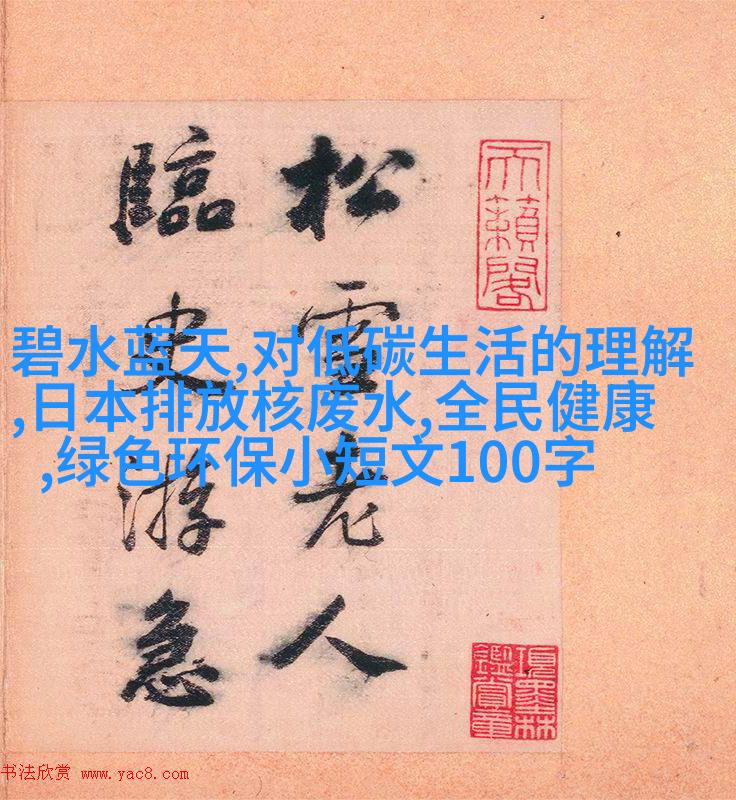 天籟閣
松雪老人
臨史游急
碧水蓝天,对低碳生活的理解
,日本排放核废水,全民健康
,绿色环保小短文100字
項墨林
鑑賞章
书法欣赏 www.yac8.com